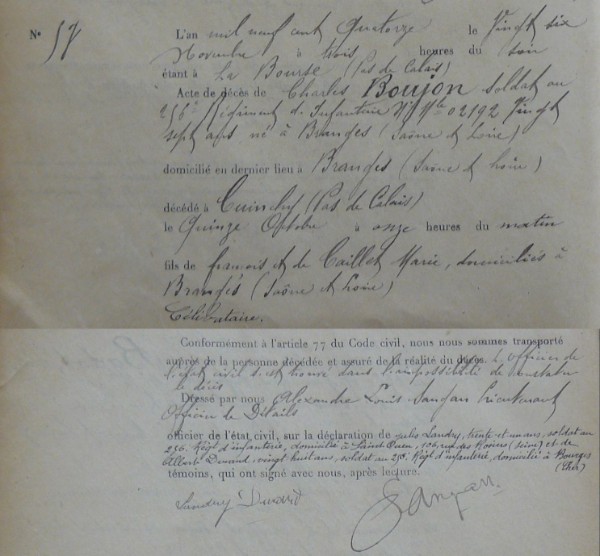 N° 57
L'an mil neuf cent Quatorze le Vingt six
Novembre à trois heures du soir
étant à La Bourse (Pas de Calais)
Acte de décès de Charles Boujon soldat au
256e Régiment de Infanterie No Mle 02192 Vingt
sept ans né à Branges (Saône et Loire)
domicilié en dernier lieu à Branges (Saône et Loire)
décédé à Cuinchy (Pas de Calais)
le Quinze Octobre à onze heures du matin
fils de françois et de Caillet Marie, domiciliés à
Branges (Saône et Loire)
Célibataire.
Conformément à l'article 77 du Code civil, nous nous sommes transporté
auprès de la personne décédée et assuré de la réalité du décès. L'officier de
l'état civil s'est trouvé dans l'impossibilité de constater
le décès
Dressé par nous Alexandre Louis Lieutenant
Officier de Détails
officier de l'état civil, sur la déclaration de Jules Landry, trente et un ans, soldat au
256e Régt d'infanterie, domicilié à Saint Ouen, rue des Rosiers (Seine) et de
Albert Durand vingt huit ans, soldat au 256e Régt d'infanterie, domicilié à Bourges
(Cher)
témoins, qui ont signé avec nous, après lecture.
Landry Durand